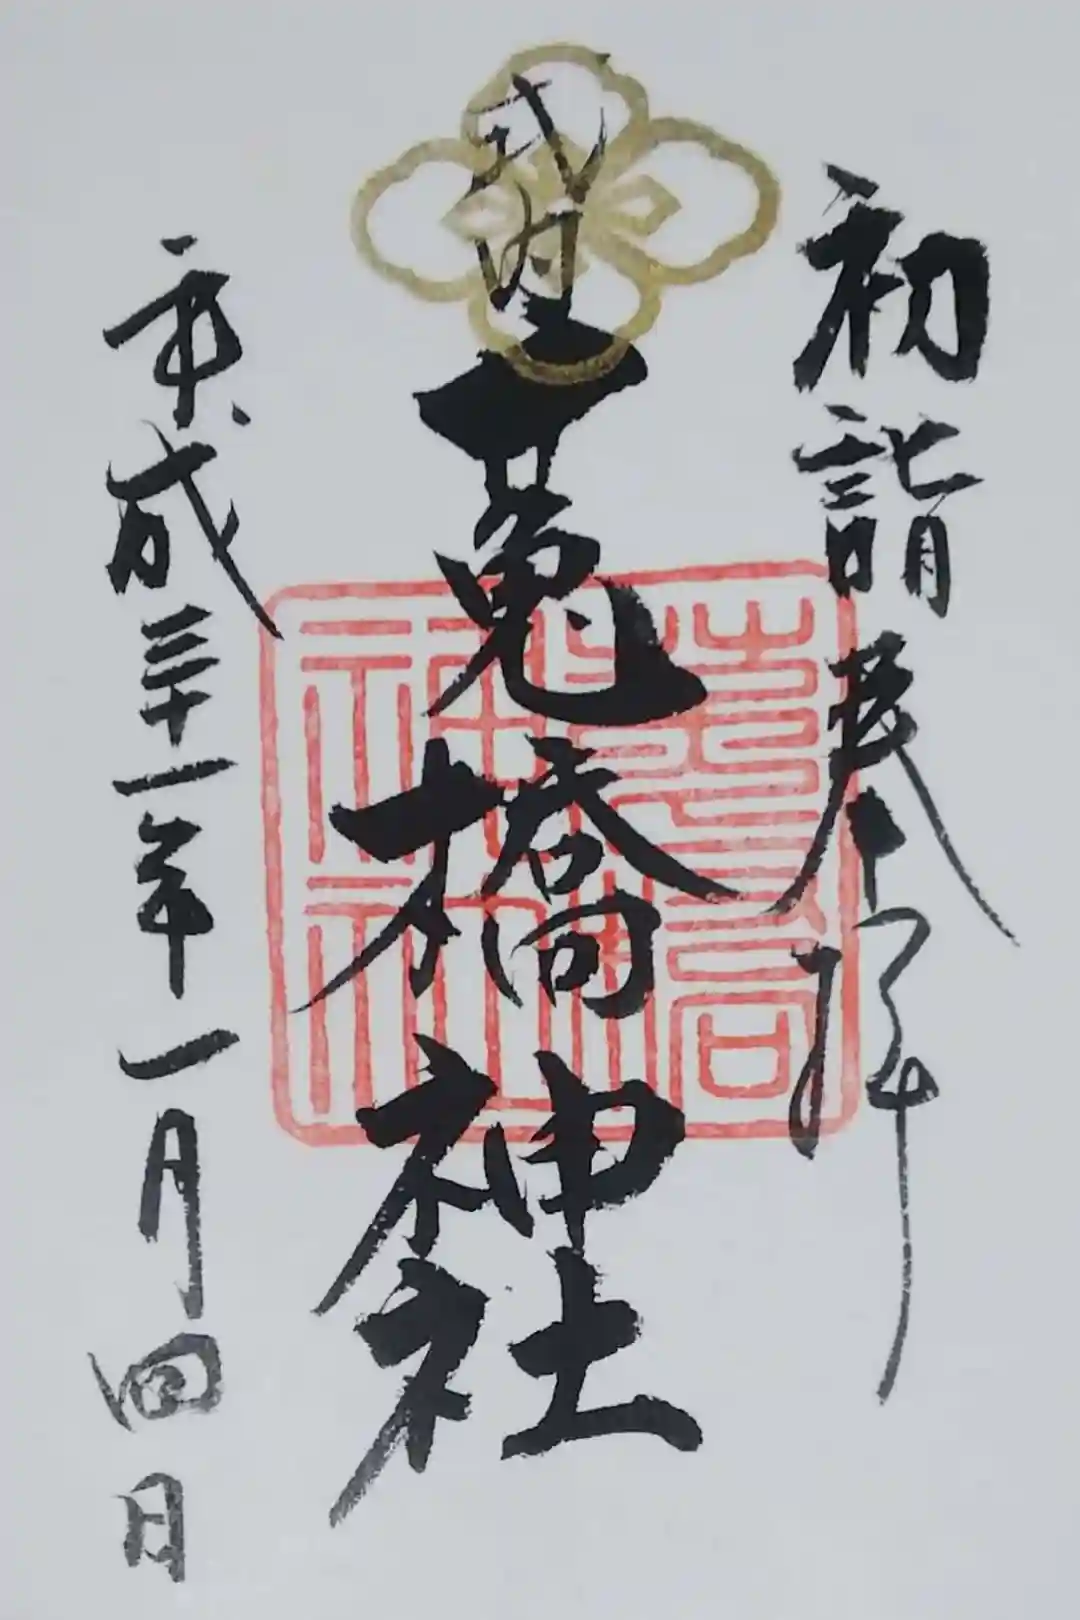 初詣奉拝
式内
莵橋神社
平成三十一年一月四日
莵橋神社